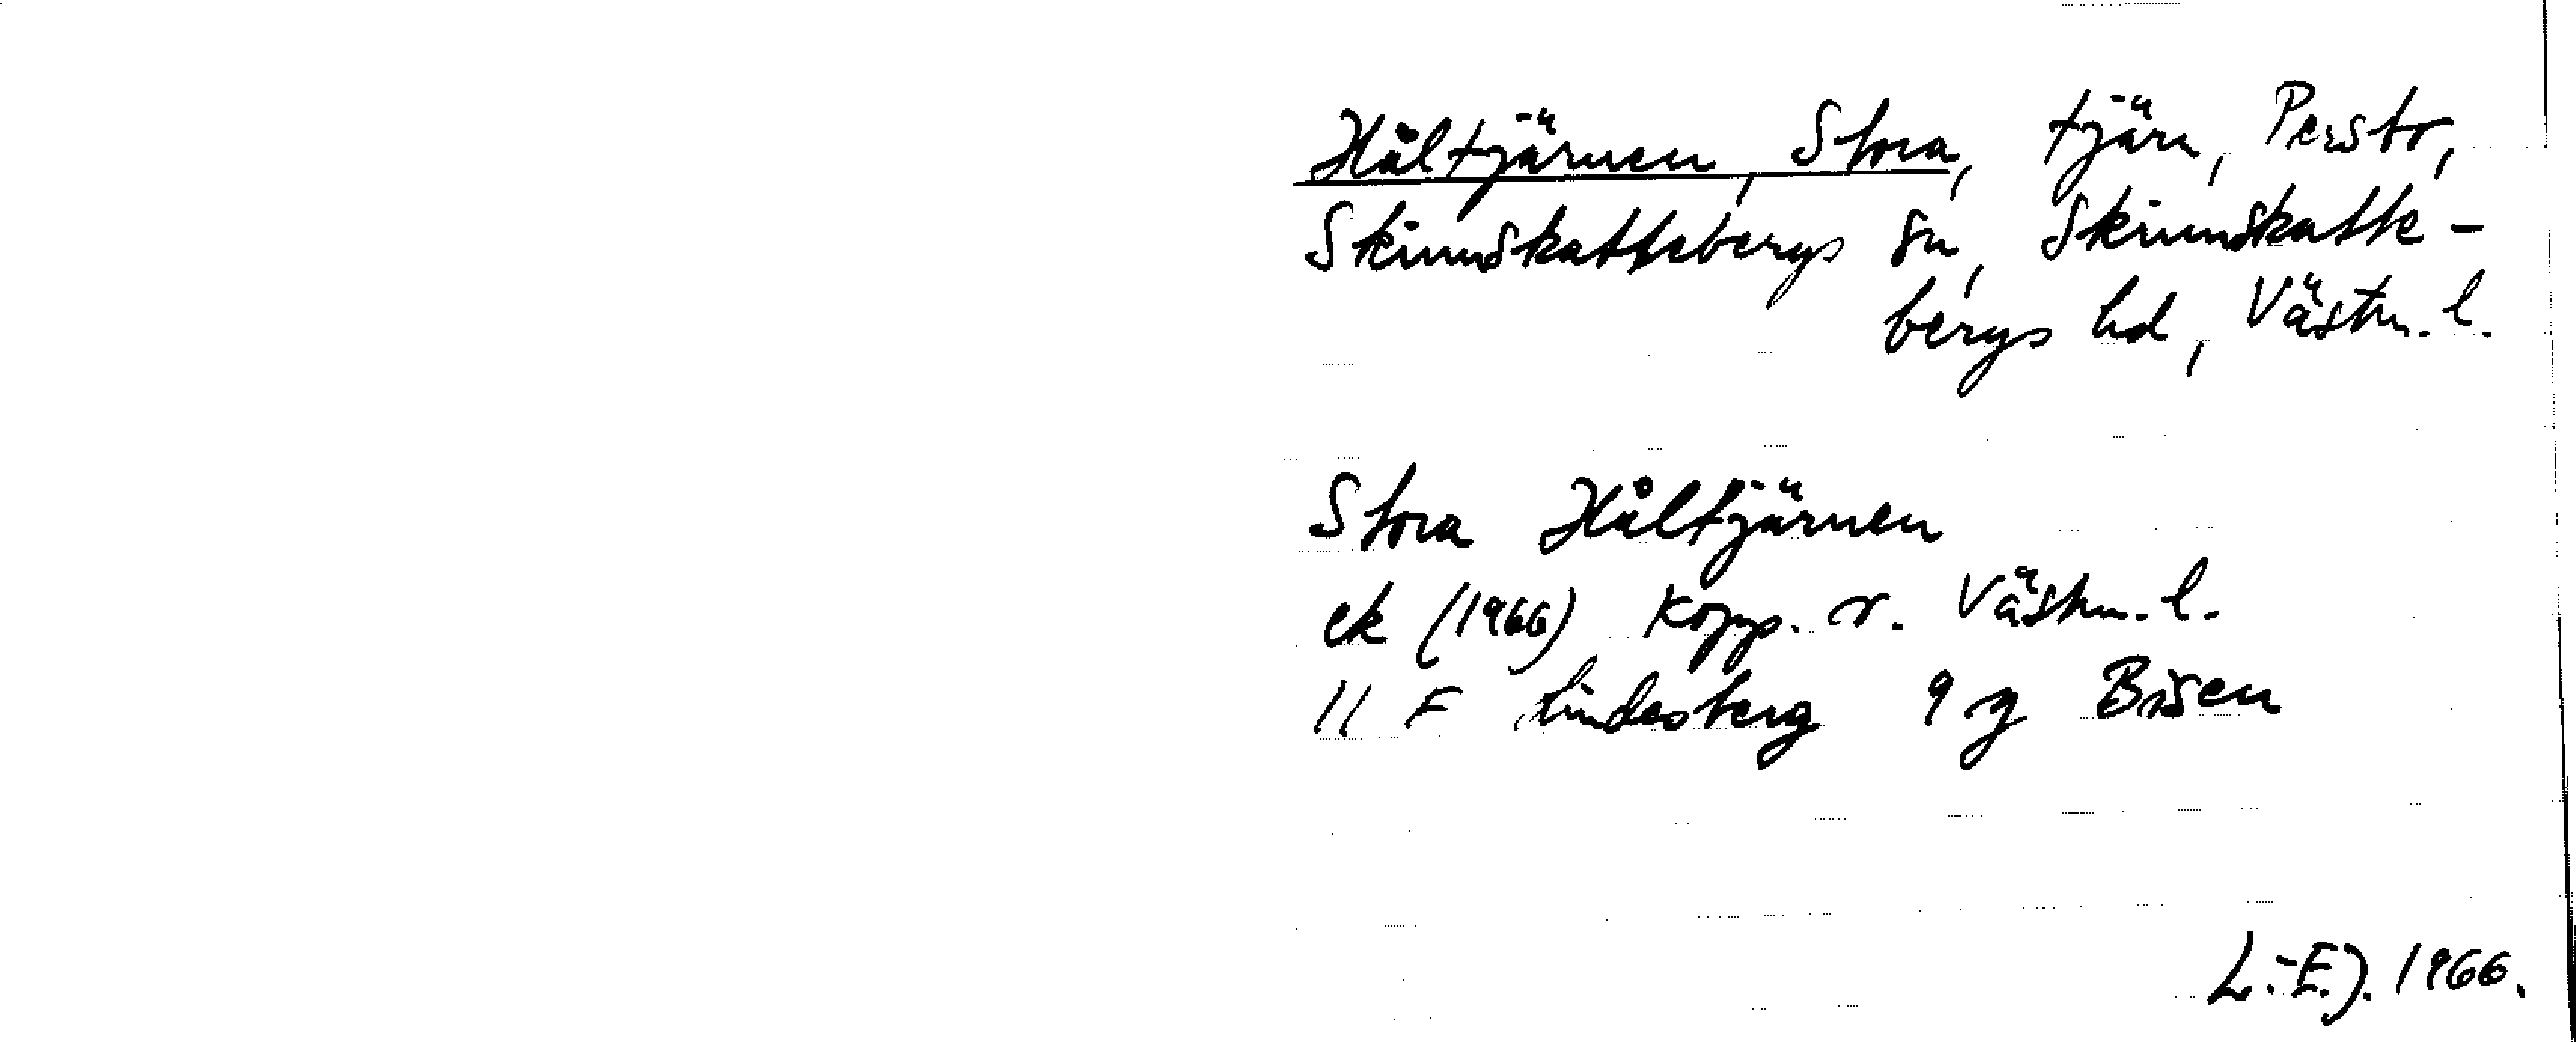 Håltjärnen, Stora, tjärn, Persbo,
Skinnskattebergs sn, Skinnskatte-
bergs hd, Västm. l.
Stora Håltjärnen
ek (1966) Kopp. o. Västm. l.
11 F Lindesberg 9 g Bisen
L.-E.J. 1966.